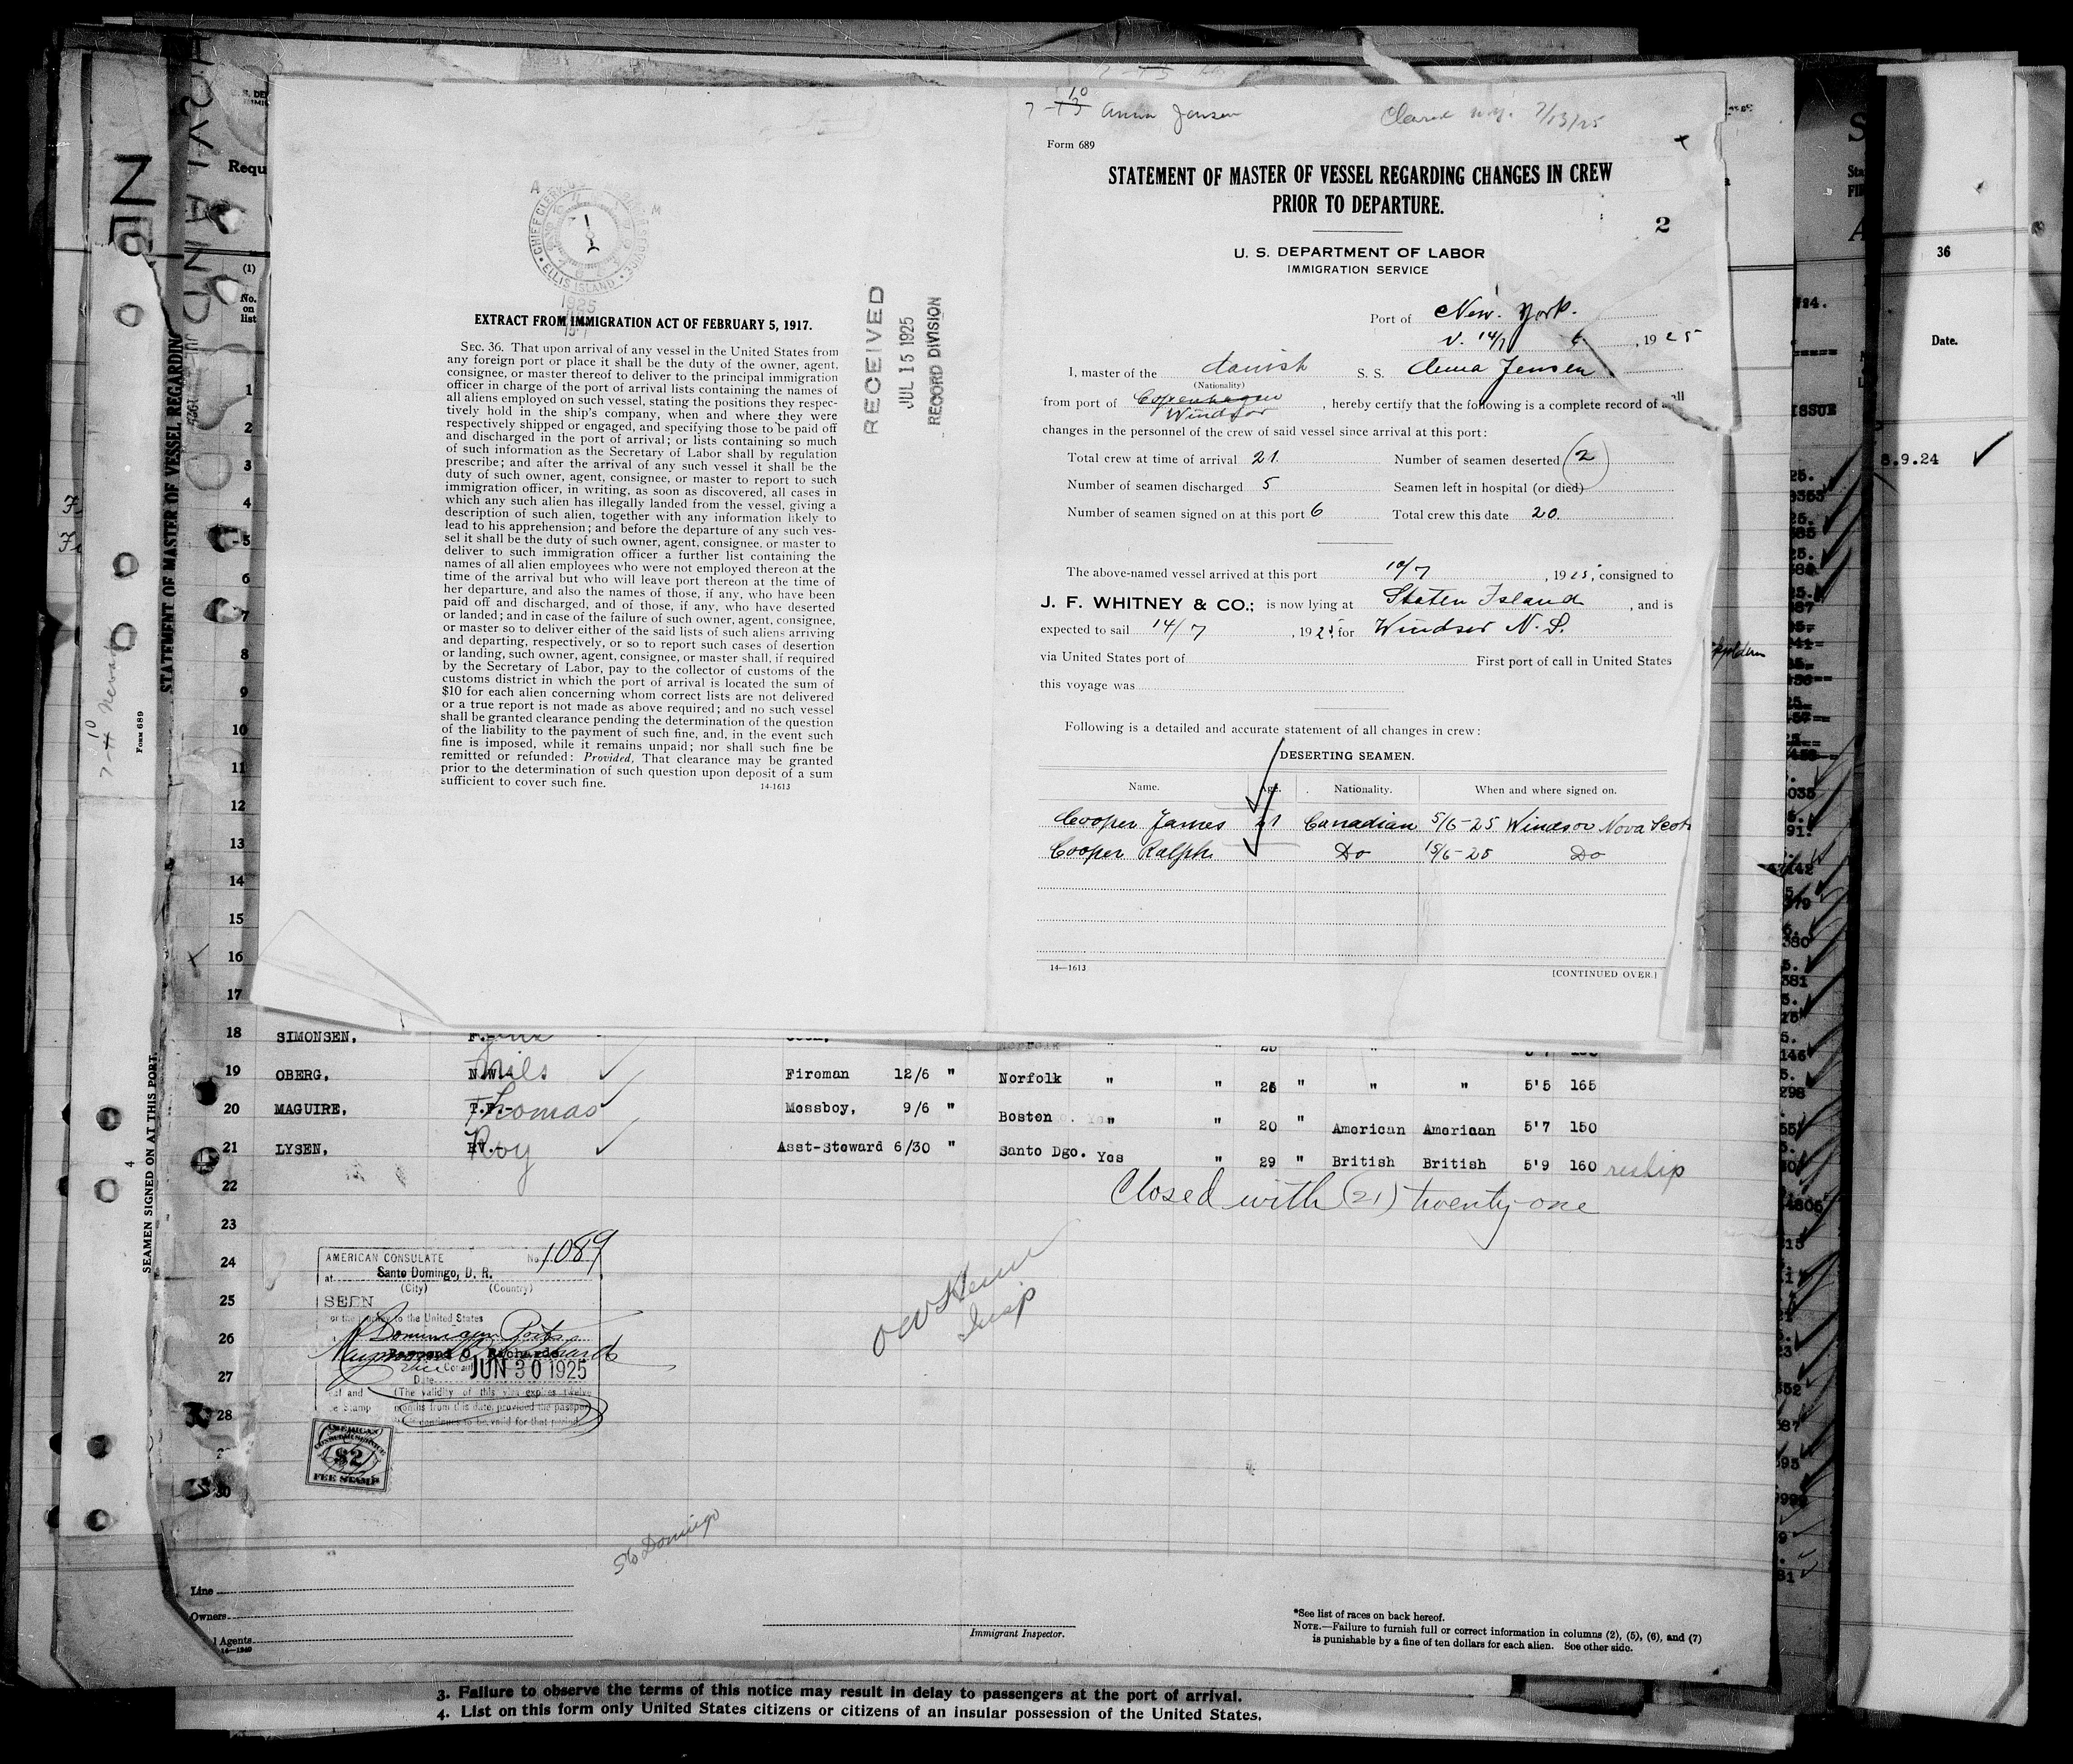 7-13 10 Anna Jensen
Cleared N.Y. 7/13/25
Form 689
STATEMENT OF MASTER OF VESSEL REGARDING CHANGES IN CREW
PRIOR TO DEPARTURE.
2
U. S. DEPARTMENT OF LABOR
IMMIGRATION SERVICE
Port of New York.
14/7 , 1925
I, master of the danish S. S. Anna Jensen
(Nationality)
from port of Copenhagen , hereby certify that the following is a complete record of all
Windsor
changes in the personnel of the crew of said vessel since arrival at this port:
Total crew at time of arrival 21. Number of seamen deserted (2)
Number of seamen discharged 5 Seamen left in hospital (or died)
Number of seamen signed on at this port 6 Total crew this date 20.
The above-named vessel arrived at this port 10/7 , 1925, consigned to
J. F. WHITNEY & CO.; is now lying at Staten Island , and is
expected to sail 14/7 , 1925 for Windsor N.S.
via United States port of First port of call in United States
this voyage was
Following is a detailed and accurate statement of all changes in crew:
DESERTING SEAMEN.
Name. Age. Nationality. When and where signed on.
Cooper James 21 Canadian 5/6-25 Windsor Nova Scot
Cooper Ralph Do 15/6-25 Do
14—1613
[CONTINUED OVER.]
CHIEF CLERK'S
ELLIS ISLAND
1925
EXTRACT FROM IMMIGRATION ACT OF FEBRUARY 5, 1917.
SEC. 36. That upon arrival of any vessel in the United States from
any foreign port or place it shall be the duty of the owner, agent,
consignee, or master thereof to deliver to the principal immigration
officer in charge of the port of arrival lists containing the names of
all aliens employed on such vessel, stating the positions they respec-
tively hold in the ship's company, when and where they were
respectively shipped or engaged, and specifying those to be paid off
and discharged in the port of arrival; or lists containing so much
of such information as the Secretary of Labor shall by regulation
prescribe; and after the arrival of any such vessel it shall be the
duty of such owner, agent, consignee, or master to report to such
immigration officer, in writing, as soon as discovered, all cases in
which any such alien has illegally landed from the vessel, giving a
description of such alien, together with any information likely to
lead to his apprehension; and before the departure of any such ves-
sel it shall be the duty of such owner, agent, consignee. or master to
deliver to such immigration officer a further list containing the
names of all alien employees who were not employed thereon at the
time of the arrival but who will leave port thereon at the time of
her departure, and also the names of those, if any, who have been
paid off and discharged, and of those, if any, who have deserted
or landed; and in case of the failure of such owner, agent, consignee,
or master so to deliver either of the said lists of such aliens arriving
and departing, respectively, or so to report such cases of desertion
or landing, such owner, agent, consignee, or master shall, if required
by the Secretary of Labor, pay to the collector of customs of the
customs district in which the port of arrival is located the sum of
$10 for each alien concerning whom correct lists are not delivered
or a true report is not made as above required; and no such vessel
shall be granted clearance pending the determination of the question
of the liability to the payment of such fine, and, in the event such
fine is imposed, while it remains unpaid; nor shall such fine be
remitted or refunded: Provided, That clearance may be granted
prior to the determination of such question upon deposit of a sum
sufficient to cover such fine.
14-1613
RECEIVED
JUL 15 1925
RECORD DIVISION
STATEMENT OF MASTER OF VESSEL REGARDING
Form 689
SEAMEN SIGNED ON AT THIS PORT.
4
Requ
(1)
No.
on
list
1
2
3
4
5
6
7
8
9
10
11
12
13
14
15
16
17
18 SIMONSEN, F.
19 OBERG, N.W. Nils Fireman 12/6 " Norfolk " " 26 " " " 5'5 165
20 MAGUIRE, T.F. Thomas Messboy, 9/6 " Boston " " 20 " American American 5'7 150
21 LYSEN, RV. Roy Asst-Steward 6/30 " Santo Dgo. Yes " 29 " British British 5'9 160 reship
22
Closed with (21) twenty one
23
24
25
26
27
28
30
AMERICAN CONSULATE No. 1089
at Santo Domingo, D. R.
(City) (Country)
SEEN
to the United States
Dominican Ports
Raymond O. Richards
Vice Consul
Date JUN 30 1925
(The validity of this visa expires twelve
months from this date, provided the passport
continues to be valid for that period.)
AMERICAN
CONSULAR SERVICE
$2
FEE STAMP
Insp
Sto Domingo
Line
Owners
Agents
Immigrant Inspector.
*See list of races on back hereof.
NOTE.—Failure to furnish full or correct information in columns (2), (5), (6), and (7)
is punishable by a fine of ten dollars for each alien. See other side.
3. Failure to observe the terms of this notice may result in delay to passengers at the port of arrival.
4. List on this form only United States citizens or citizens of an insular possession of the United States.
36
Date.
8.9.24